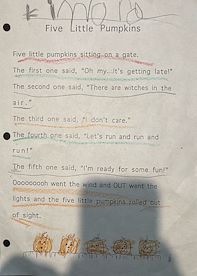 Five Little Pumpkins
Five little pumpkins sitting on a gate.
The first one said, "Oh my...it's getting late!"
The second one said, "There are witches in the
air."
The third one said, "I don't care."
The fourth one said, "Let's run and run and
run!"
The fifth one said, "I'm ready for some fun!"
Ooooooooh went the wind and OUT went the
lights and the five little pumpkins rolled out
of sight.